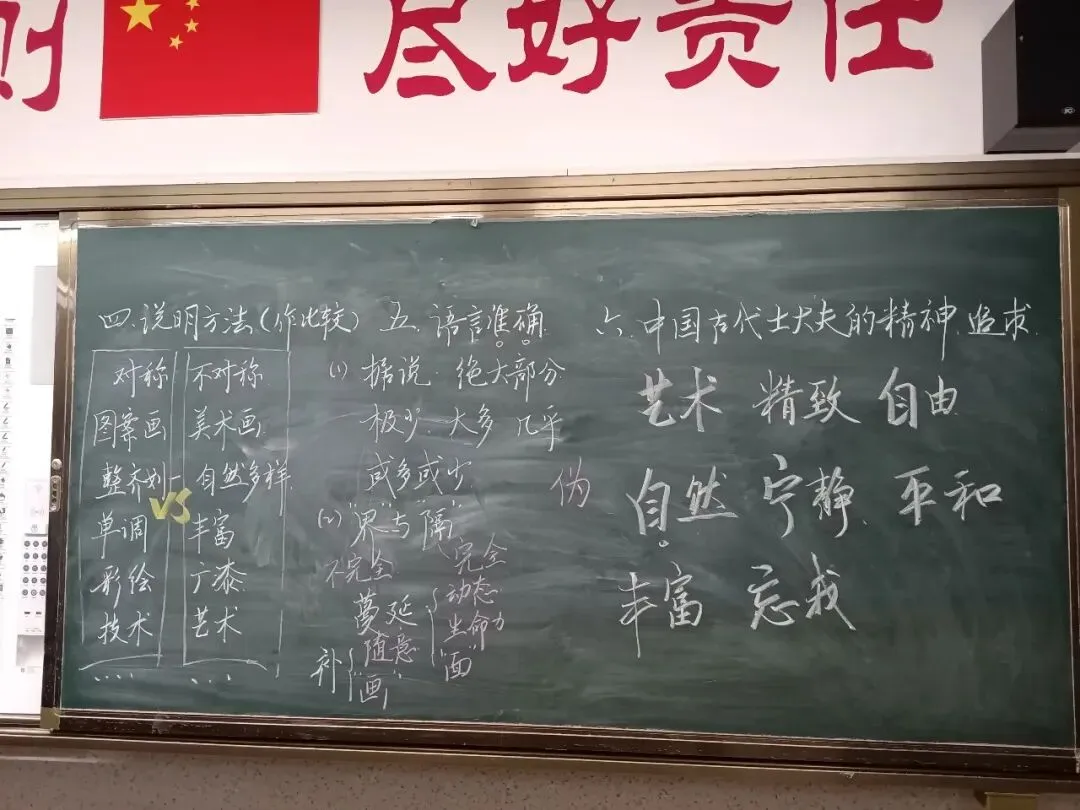 则 尽好责任
四.说明方法(作比较)
对称 不对称
图案画 美术画
整齐划一 自然多样
VS
单调 丰富
彩绘 广漆
技术 艺术
.... ...
五.语言准确
(1)据说.绝大部分
极少.大多 几乎
或多或少
(2)"界"与"隔"
不完全 完全
蔓延 动态
随意 生命力
补 "画" "面"
六.中国古代士大夫的精神追求.
艺术 精致 自由
伪 自然 宁静、平和
丰富 忘我